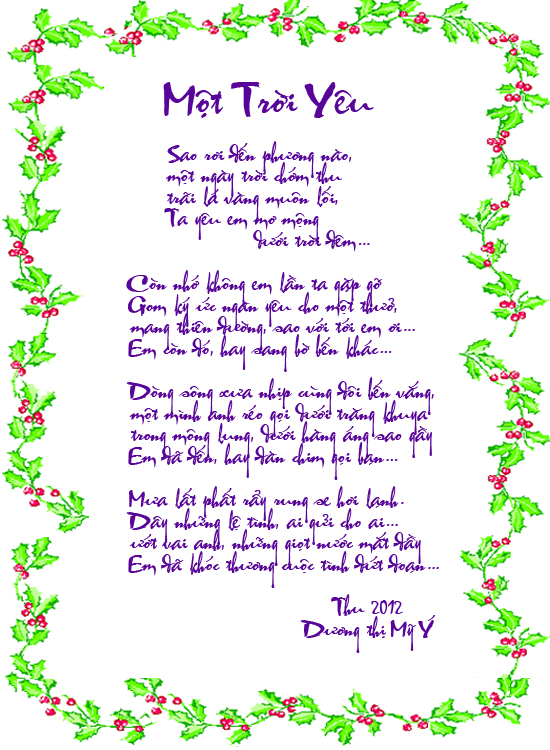 Một Trời Yêu
Sao rơi đến phương nào,
một ngày trời chớm thu
trãi lá vàng muôn lối,
Ta yêu em mơ mộng
dưới trời đêm...
Còn nhớ không em lần ta gặp gỡ
Gom ký ức ngàn yêu cho một thưở,
mang thiên đường, sao vời tới em ơi...
Em còn đó, hay sang bờ bến khác...
Dòng sông xưa nhịp cùng đôi bến vắng,
một mình anh réo gọi dưới trăng khuya
trong mông lung, dưới hàng áng sao gầy
Em đã đến, hay đàn chim gọi bạn...
Mưa lất phất rẩy rung se hơi lạnh.
Dây những lệ tình, ai gửi cho ai...
ướt vai anh, những giọt nước mắt đầy
Em đã khóc thương cuộc tình đứt đoạn...
Thu 2012
Dương thị Mỹ Ý